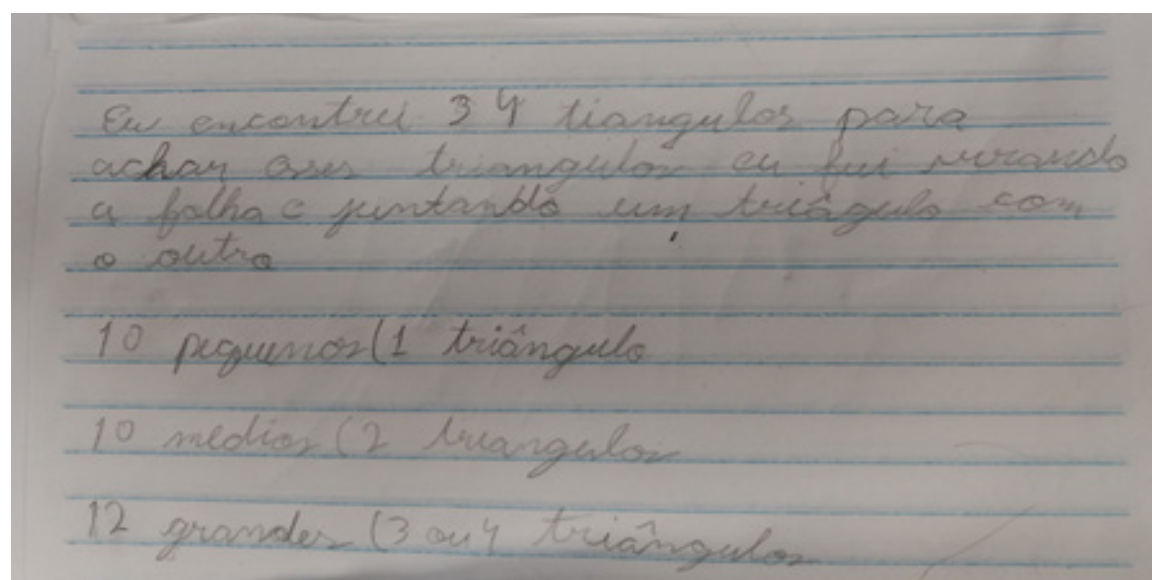 Eu encontrei 34 tiangulos para
achar esses triangulos eu fui virando
a folha e juntando um triângulo com
o outro
10 pequenos (1 triângulo
10 medios (2 triangulos
12 grandes (3 ou 4 triângulos